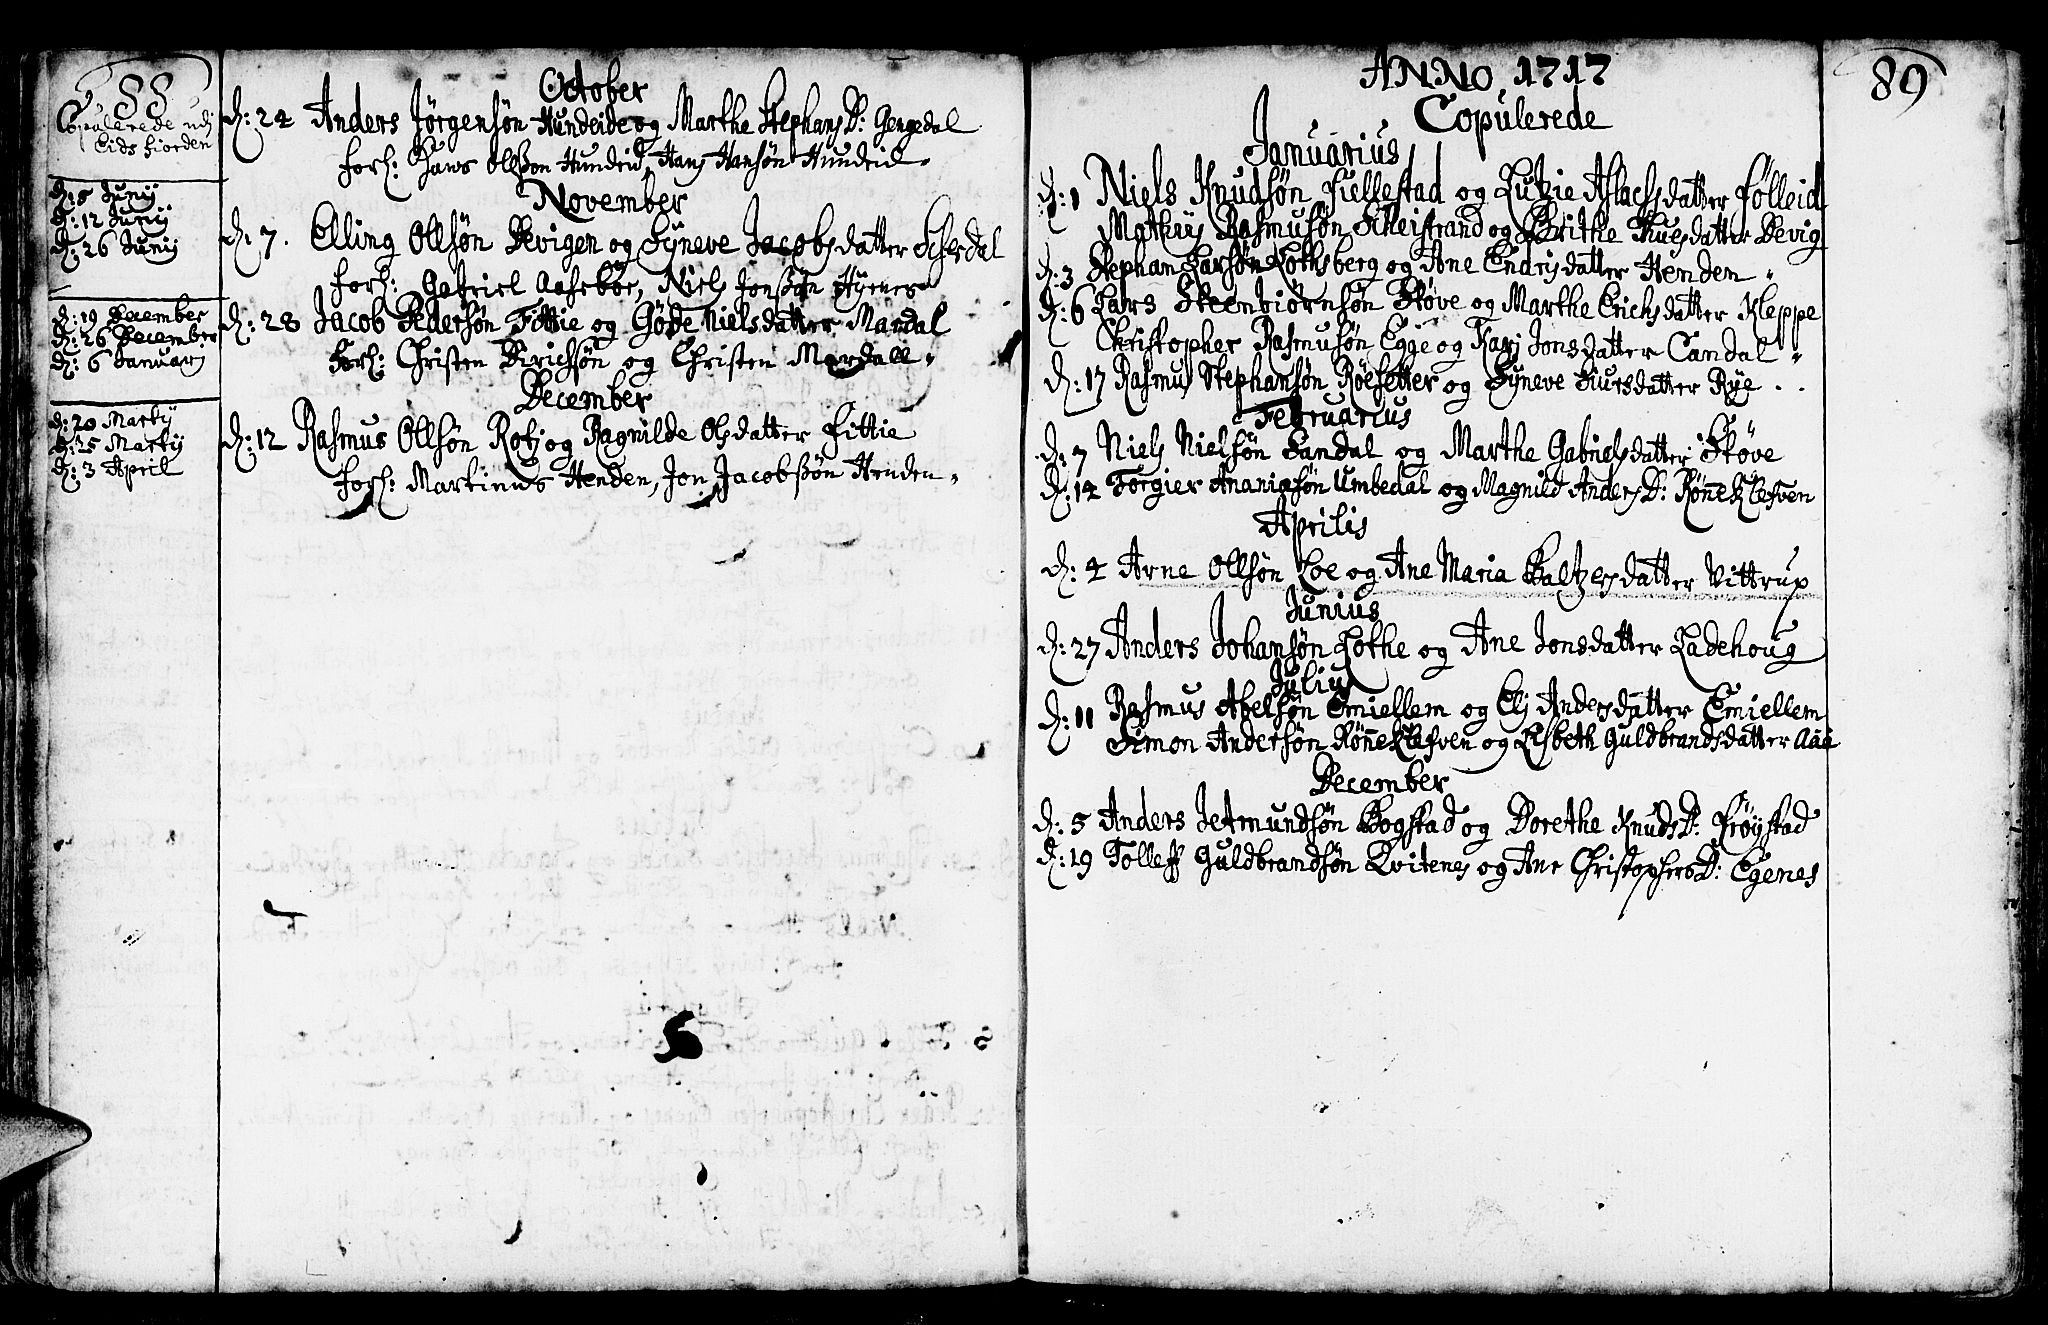 88
Copulerede udj
Eids fiorden
d: 5 Junij
d: 12 Junij
d: 26 Junij
d: 19 December
d: 26 December
d: 6 Januarj
d: 20 Martij
d: 25 Martij
d: 3 April
October
d: 24 Anders Jørgensøn Hundeide og Marthe Stephans D: Gengedal
forl: Hans Olsson Hundeid, Hans Hansøn Hundeid
November
d: 7. Elling Ollsøn Devigen og Syneve Jacobsdatter
forl: Gabriel Aasebøe, Niels Jonssøn Hyenes
d: 28 Jacob Pedersøn Fittie og Gøde Nielsdatter Mardal
Forl: Christen Diricssøn og Christen Mardall
December
d: 12 Rasmus Ollsøn Rotj og Ragnilde Olsdatter Fittie
forl: Martinus Henden, Jon Jacobssøn Henden
ANNO 1717
89
Copulerede
Januarius
d: 1 Niels Knudsøn Fullestad og Lutzie Aslachsdatter Følleid
Mathijs Rasmusøn Skeistrand og Brithe Thuesdatter Devig
d: 3 Stephan Larsøn Lothsberg og Ane Endrisdatter Hemden
d: 6 Lars Steenbiørnsøn Støve og Marthe Erichsdatter Kleppe
Christopher Rasmusøn Egge og Karj Jonsdatter Candal
d: 17 Rasmus Stephansøn Røesetter og Syneve Siursdatter Rye
Februarius
d: 7 Niels Nielsøn Sandal og Marthe Gabrielsdatter Støve
d: 14 Torgier Ananiasøn Umbedal og Magnild Anders D: Rønneklefven
Aprilis
d: 4 Arne Ollsøn Loe og Ane Maria Baltzersdatter Vittrup
Junius
d: 27 Anders Johansøn Lothe og Ane Jonsdatter Ladehoug
Julius
d: 11 Rasmus Abelsøn Emiellem og Elj Andersdatter Emiellem
Simon Andersøn Rønneklefven og Lisbeth Guldbrandsdatter Aaa
December
d: 5 Anders Jetmundsøn Bogstad og Dorethe Knuds D: Frøystad
d: 19 Tolleff Guldbrandsøn Qvitenes og Ane Christophers D: Egenes